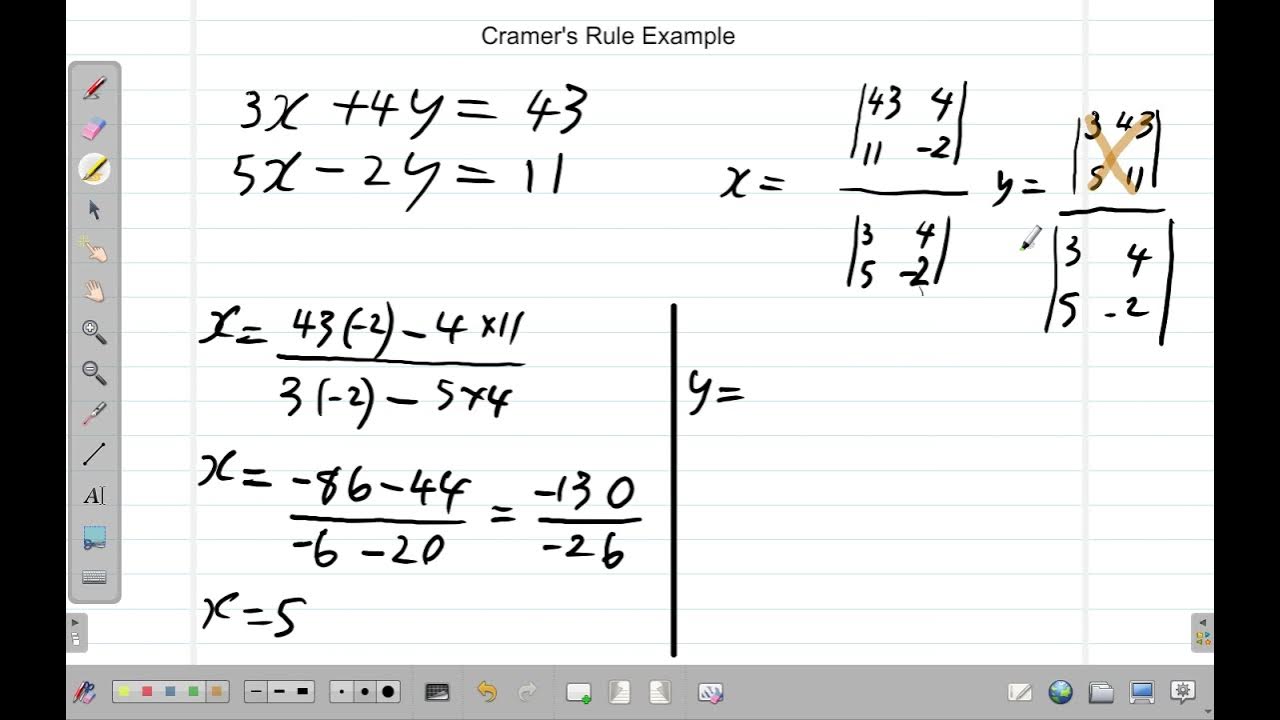 Cramer's Rule Example
3x + 4y = 43
5x - 2y = 11
x = |43 4|
|11 -2|
|3 4|
|5 -2|
y = |3 43|
|5 11|
|3 4|
|5 -2|
x = 43(-2) - 4 × 11
3(-2) - 5×4
x = -86 - 44 = -130
-6 - 20 -26
x = 5
y =
A